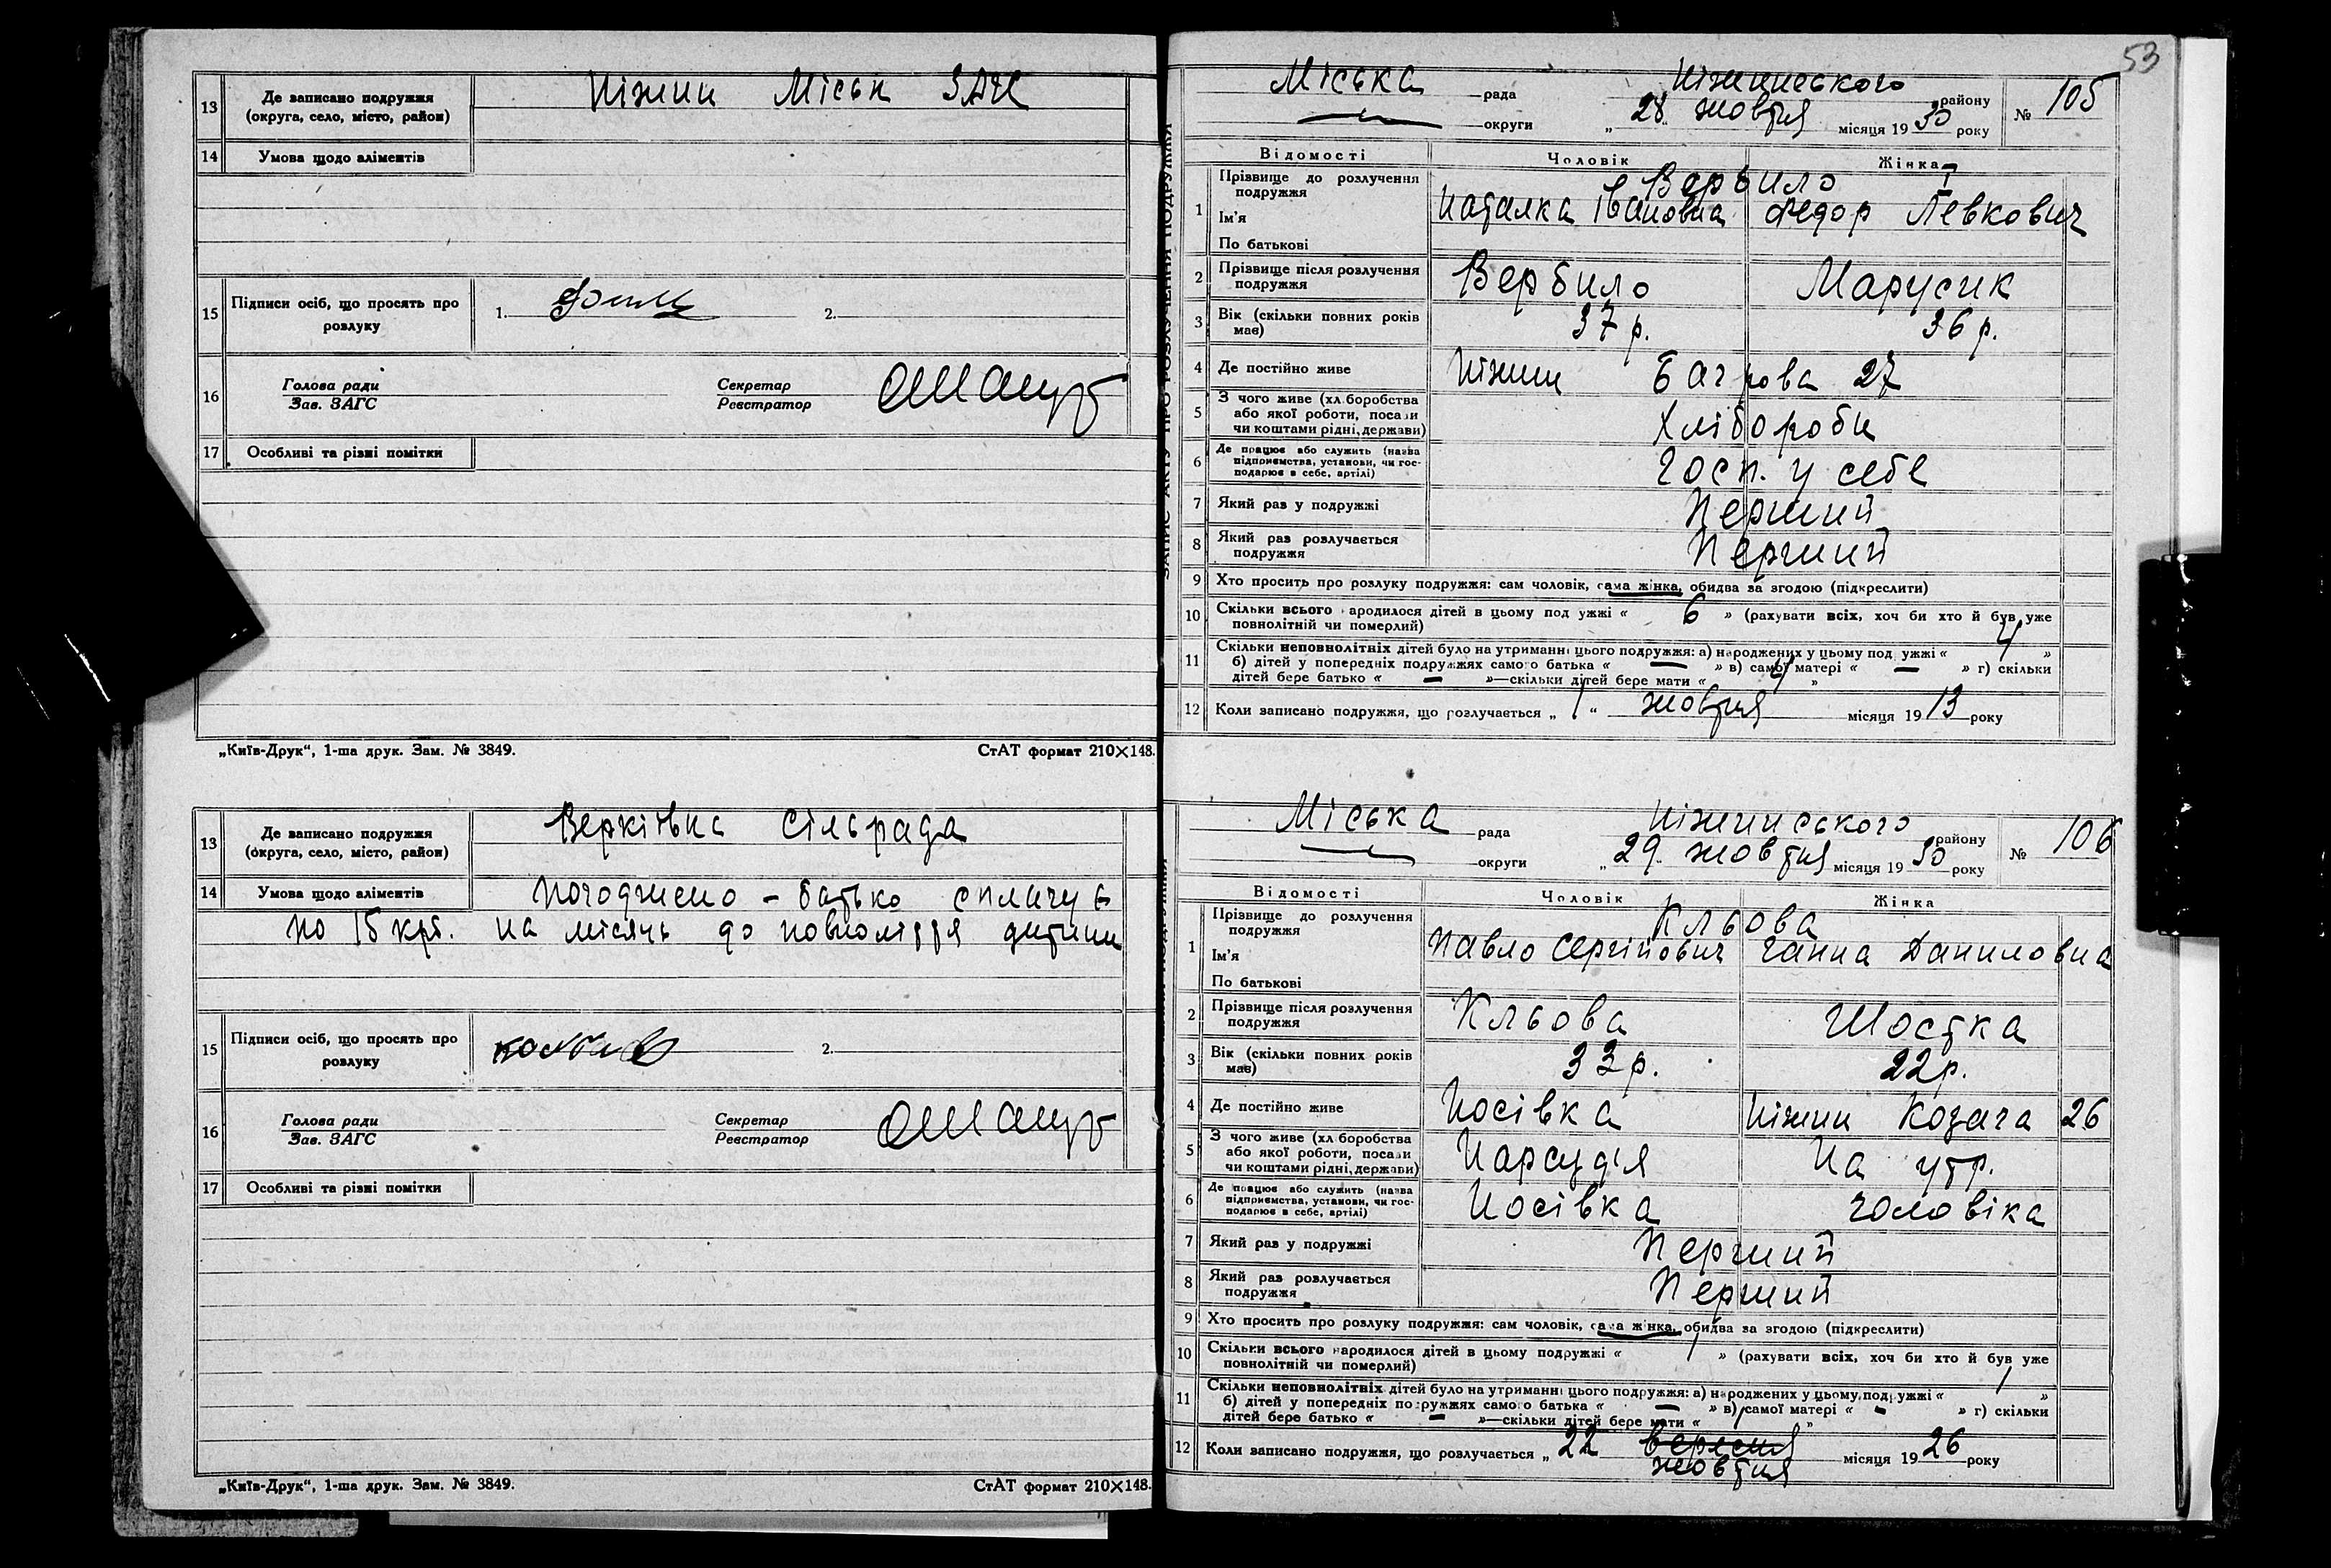 13 Де записано подружжя (округа, село, місто, район) Ніжин Міськ ЗАГС
14 Умова щодо аліментів
15 Підписи осіб, що просять про розлуку 1. 2.
16 Голова ради Секретар
Зав. ЗАГС Реєстратор
17 Особливі та різні помітки
„Київ-Друк“, 1-ша друк. Зам. № 3849. СтАТ формат 210×148.
13 Де записано подружжя (округа, село, місто, район) Веркіївка сільрада
14 Умова щодо аліментів Погоджено – батько сплачує
по 15 крб. на місяць до повноліття дитини
15 Підписи осіб, що просять про розлуку 2.
16 Голова ради Секретар
Зав. ЗАГС Реєстратор
17 Особливі та різні помітки
„Київ-Друк“, 1-ша друк. Зам. № 3849. СтАТ формат 210×148.
53
ЗАПИС АКТУ ПРО РОЗЛУЧЕННЯ ПОДРУЖЖЯ
Міська рада Ніжинського району № 105
округи „28“ жовтня місяця 1930 року
Відомості Чоловік Жінка
1 Прізвище до розлучення подружжя Вербило
Ім'я Наталка Івановна Федор Левкович
По батькові
2 Прізвище після розлучення подружжя Вербило Марусик
3 Вік (скільки повних років має) 37 р. 36 р.
4 Де постійно живе Ніжин 27
5 З чого живе (хліборобства або якої роботи, посади чи коштами рідні, держави) Хлібороби
6 Де працює або служить (назва підприємства, установи, чи господарює в себе, артілі) Госп. у себе
7 Який раз у подружжі Перший
8 Який раз розлучається подружжя Перший
9 Хто просить про розлуку подружжя: сам чоловік, сама жінка, обидва за згодою (підкреслити)
10 Скільки всього народилося дітей в цьому подружжі « 6 » (рахувати всіх, хоч би хто й був уже
повнолітній чи померлий)
11 Скільки неповнолітніх дітей було на утриманні цього подружжя: а) народжених у цьому подружжі « 4 »
б) дітей у попередніх подружжях самого батька « — » в) самої матері « — » г) скільки
дітей бере батько « — »—скільки дітей бере мати « 4 »
12 Коли записано подружжя, що розлучається „ 1 “ жовтня місяця 1913 року
Міська рада Ніжинського району № 106
округи „29. жовтня місяця 1930 року
Відомості Чоловік Жінка
1 Прізвище до розлучення подружжя Кльова
Ім'я Павло Сергійович Ганна Даниловна
По батькові
2 Прізвище після розлучення подружжя Кльова Шостка
3 Вік (скільки повних років має) 33 р. 22 р.
4 Де постійно живе Носівка Ніжин Козача 26
5 З чого живе (хліборобства або якої роботи, посади чи коштами рідні, держави) Нарсуддя На утр.
6 Де працює або служить (назва підприємства, установи, чи господарює в себе, артілі) Носівка чоловіка
7 Який раз у подружжі Перший
8 Який раз розлучається подружжя Перший
9 Хто просить про розлуку подружжя: сам чоловік, сама жінка, обидва за згодою (підкреслити)
10 Скільки всього народилося дітей в цьому подружжі « 1 » (рахувати всіх, хоч би хто й був уже
повнолітній чи померлий)
11 Скільки неповнолітніх дітей було на утриманні цього подружжя: а) народжених у цьому подружжі « 1 »
б) дітей у попередніх подружжях самого батька « — » в) самої матері « — » г) скільки
дітей бере батько « — »—скільки дітей бере мати « 1 »
12 Коли записано подружжя, що розлучається „ 22 вересня місяця 1926 року
жовтня